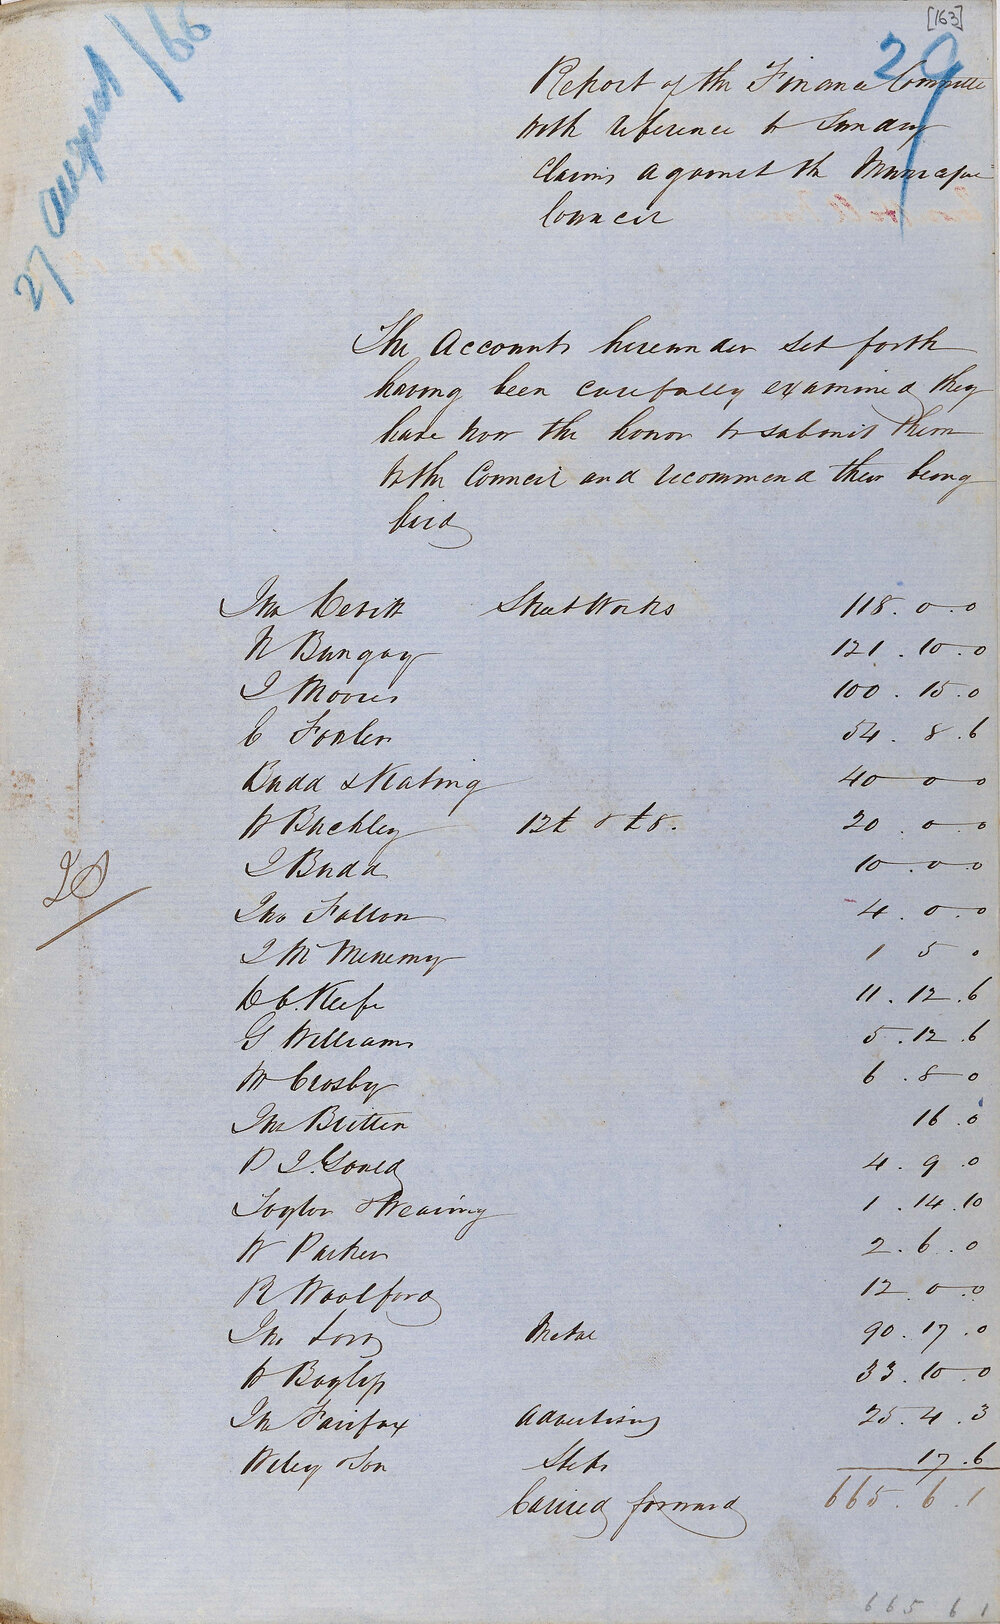 [163]
29
27 August /66
Report of the Finance Committee
with reference to Sundry
Claims against the Municipal
Council
The Accounts hereunder set forth
having been carefully examined they
have now the honor to submit them
to the Council and recommend their being
paid
Jno Street Works 118. 0. 0
W Bungay 121. 10. 0
J Moores 100. 15. 0
C Fowler 54. 8. 6
Budd & Keating 40 0 0
W Buckley 20. 0. 0
J Budd 10. 0. 0
Jno Fallon 4. 0. 0
J McMenemy 1 5 0
D C. Keefe 11. 12. 6
G Williams 5. 12. 6
W Crosby 6. 8 0
Jno Britten 16. 0
P J. Gould 4. 9. 0
Taylor & Wearing 1. 14. 10
W Parker 2. 6. 0
R Woolford 12. 0. 0
Jno Metal 90. 17. 0
W 33. 10. 0
Jno Fairfax Advertising 25. 4. 3
Wiley & Son 17. 6
Carried forward 665. 6. 1
665 6 1